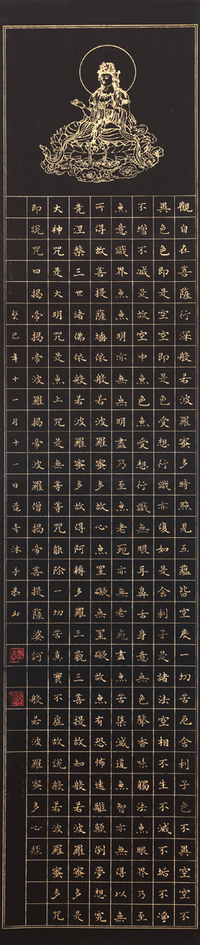 觀自在菩薩行深般若波羅蜜多時照見五蘊皆空度一切苦厄舍利子色不異空空不
異色色即是空空即是色受想行識亦復如是舍利子是諸法空相不生不滅不垢不淨
不增不減是故空中無色無受想行識無眼耳鼻舌身意無色聲香味觸法無眼界乃至
無意識界無無明亦無無明盡乃至無老死亦無老死盡無苦集滅道無智亦無得以無
所得故菩提薩埵依般若波羅蜜多故心無罣礙無罣礙故無有恐怖遠離顛倒夢想究
竟涅槃三世諸佛依般若波羅蜜多故得阿耨多羅三藐三菩提故知般若波羅蜜多是
大神咒是大明咒是無上咒是無等等咒能除一切苦真實不虛故說般若波羅蜜多咒
即說咒曰揭帝揭帝波羅揭帝波羅僧揭帝菩提薩婆訶 般若波羅蜜多心經
癸巳年十一月十一日奇沐手恭